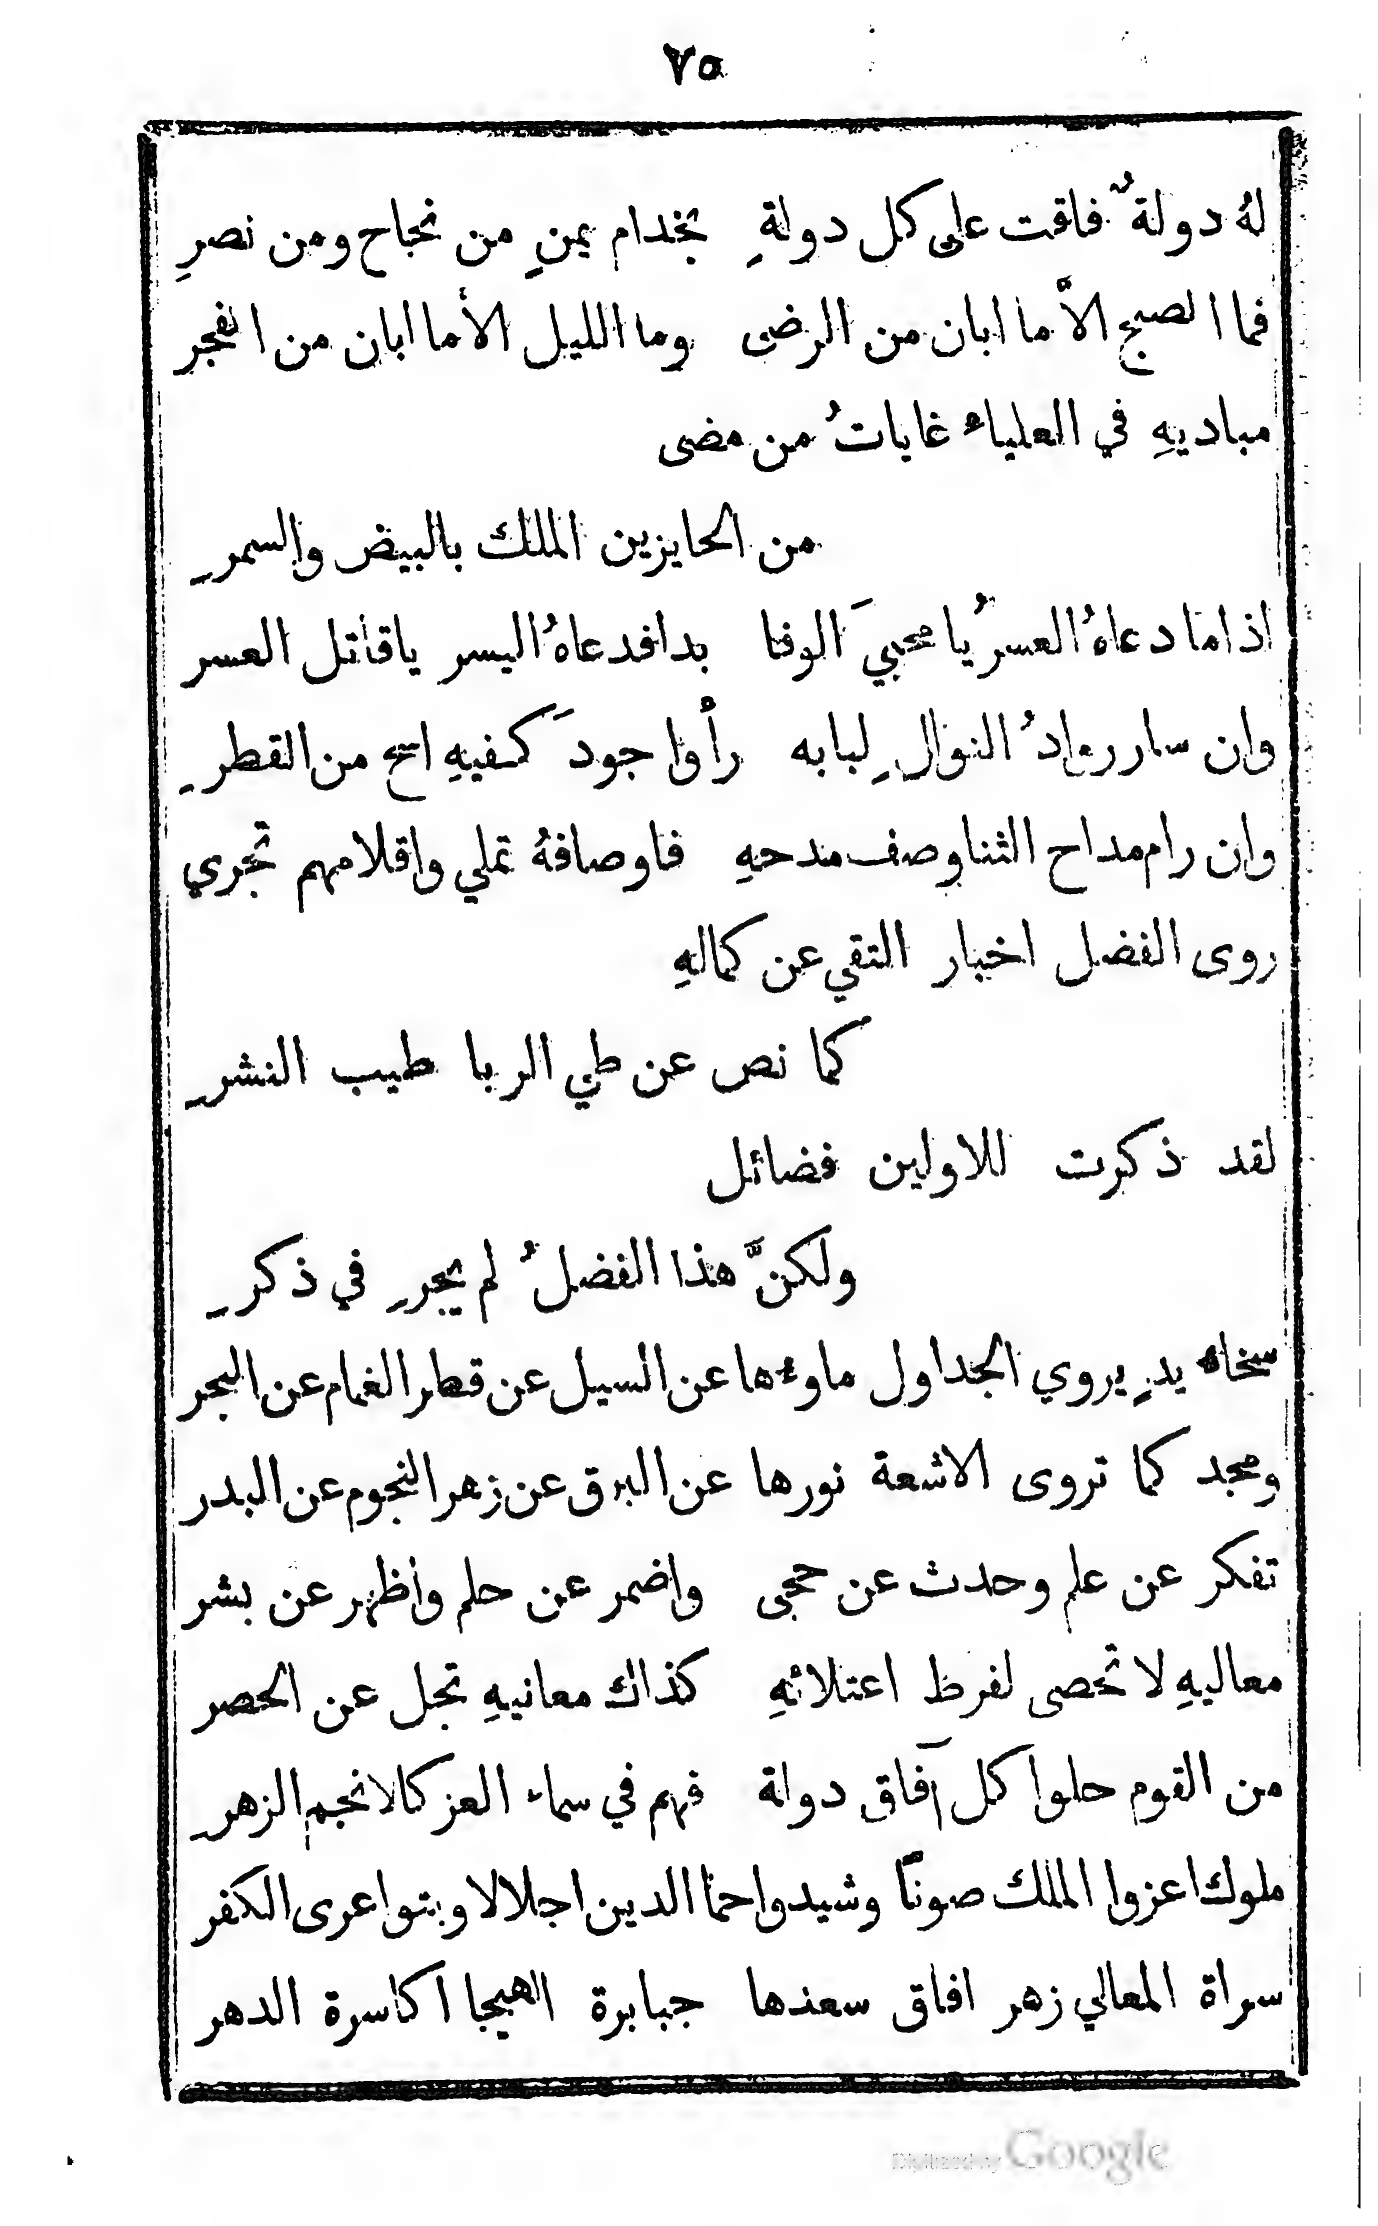 ٧٥
لهُ دولةٌ فاقت على كل دولةٍ بخدام يمنٍ من نجاح ومن نصرِ
فما الصبح الاَّ ما ابان من الرضى وما الليل الأما ابان من الفجر
مباديهِ في العلياء غاباتُ من مضى
من الحايزين الملك بالبيض والسمرِ
اذا ما دعاهُ العسرُ يا محييَ الوفا بدا فدعاهُ اليسر ياقاتل العسر
وان سار روادُ النوالِ لبابه رأوا جودَ كفيهِ اسح من القطرِ
وان رام مداح الثنا وصف مدحهِ فاوصافهُ تملي واقلامهم تجري
روى الفضل اخبار التقي عن كمالهِ
كما نص عن طي الربا طيب النشرِ
لقد ذكرت للاولين فضائل
ولكنَّ هذا الفضلُ لم يجرِ في ذكرِ
سخاء يدٍ يروي الجداول ماوءها عن السيل عن قطر الغمام عن البحر
ومجد كما تروى الاشعة نورها عن البرق عن زهر النجوم عن البدر
تفكر عن علم وحدث عن حجى واضمر عن حلم وأظهر عن بشر
معاليهِ لا تحصى لفرط اعتلائهِ كذاك معانيهِ تجل عن الحصر
من القوم حلوا كل آفاق دولة فهم في سماء العز كالانجم الزهرِ
ملوك اعزوا الملك صونًا وشيدوا حما الدين اجلالا وبتوا عرى الكفر
سراة المعالي زهر افاق سعدها جبابرة الهيجا اكاسرة الدهر
Digitized by Google